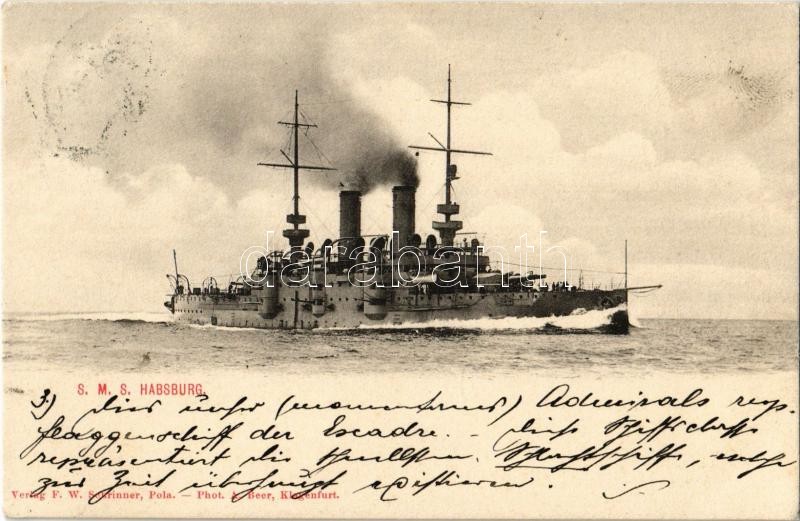 darabanth
S. M. S. HABSBURG.
3.) Dies unser (momentanes) Admirals resp.
flaggenschiff der Escadre. – Diese Schiffsclasse
repräsentiert die schnellsten Schlachtschiffe, welche
zur Zeit überhaupt existieren.
Verlag F. W. Schrinner, Pola. — Phot. A. Beer, Klagenfurt.